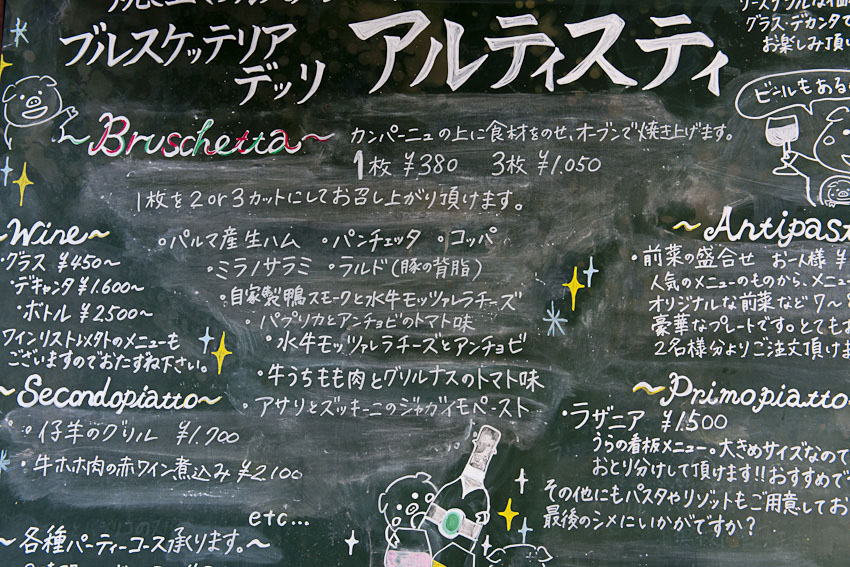 ブルスケッテリア
デッリ アルティスティ
グラス、デカンタで
お楽しみ頂い
ビールもある
~Bruschetta~
カンパーニュの上に食材をのせ、オーブンで焼き上げます。
1枚 ¥380 3枚 ¥1.050
1枚を2or3カットにしてお召し上がり頂けます。
・パルマ産生ハム ・パンチェッタ ・コッパ
・ミラノサラミ ・ラルド(豚の背脂)
・自家製鴨スモークと水牛モッツァレラチーズ
・パプリカとアンチョビのトマト味
・水牛モッツァレラチーズとアンチョビ
・牛うちもも肉とグリルナスのトマト味
・アサリとズッキーニのジャガイモペースト
~Wine~
・グラス ¥450~
・デキャンタ ¥1.600~
・ボトル ¥2500~
ワインリスト以外のメニューも
ございますのでおたずね下さい。
~Secondopiatto~
・仔羊のグリル ¥1.700
・牛ホホ肉の赤ワイン煮込み ¥2.100
etc...
~各種パーティーコース承ります。~
~Antipast
・前菜の盛合せ お一人様 ¥
人気のメニューのものから、メニュー
オリジナルな前菜など7~8
豪華なプレートです。とてもお
2名様分よりご注文頂けま
~Primopiatto
・ラザニア ¥1.500
うらの看板メニュー。大きめサイズなので
おとり分けして頂けます!!おすすめで
その他にもパスタやリゾットもご用意してお
最後のシメにいかがですか?